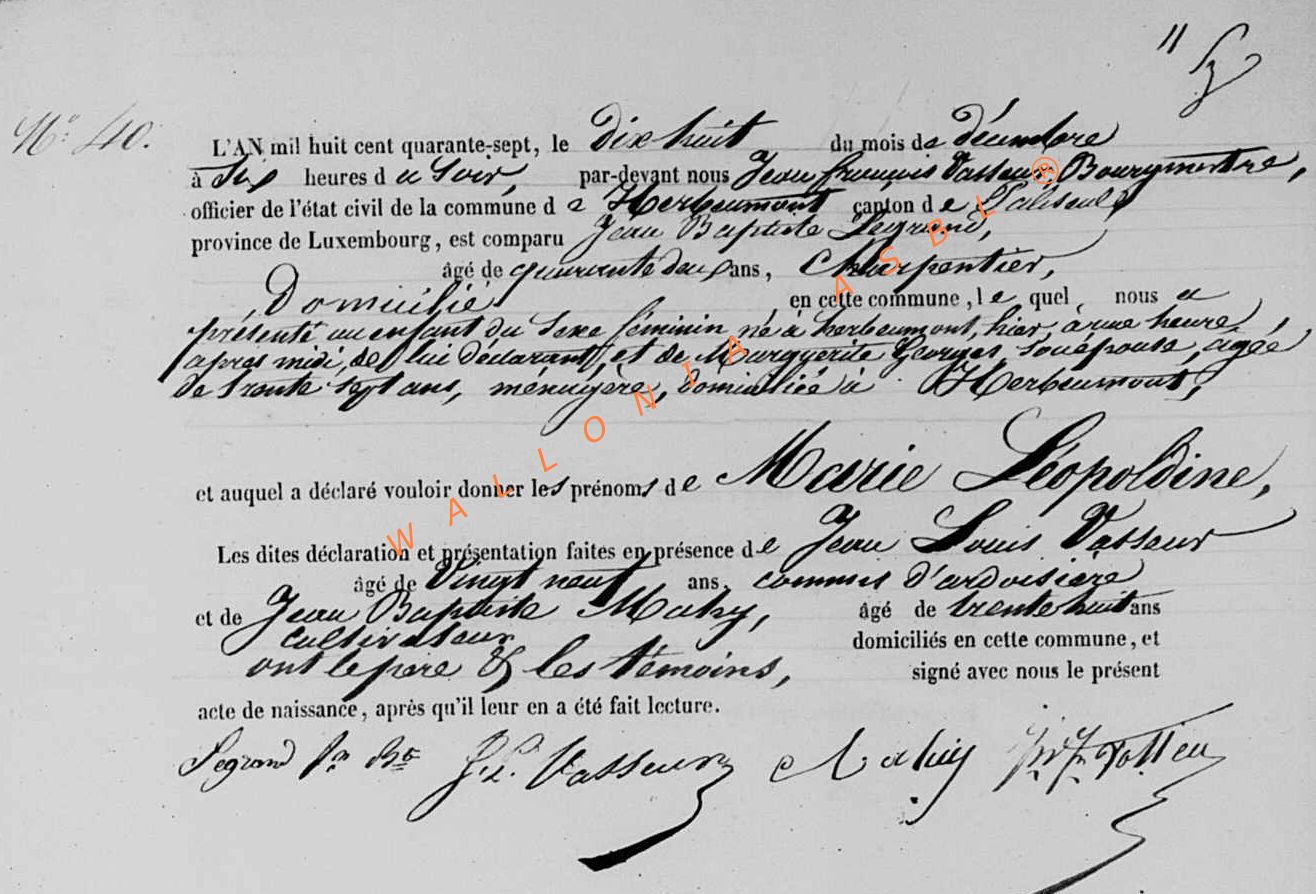 11
N.º 40.
L'AN mil huit cent quarante-sept, le dix-huit du mois de décembre
à Six heures du Soir, par-devant nous Jean françois Vasseur Bourgmestre,
officier de l'état civil de la commune de Herbeumont canton de Paliseul,
province de Luxembourg, est comparu Jean Baptiste Legrand,
âgé de quarante deux ans, Charpentier,
Domicilié en cette commune, le quel nous a
présenté un enfant du Sexe féminin né à herbeumont, hier, à une heure,
apres midi, de lui déclarant, et de Marguerite Georges, Son épouse, agée
de trente sept ans, ménagère, domiciliée à Herbeumont,
et auquel a déclaré vouloir donner les prénoms de Marie Léopoldine,
Les dites déclaration et présentation faites en présence de Jean Louis Vasseur
âgé de Vingt neuf ans, commis d'ardoisiere
et de Jean Baptiste Mahy, âgé de trente huit ans
cultivateur domiciliés en cette commune, et
ont le pere & les témoins, signé avec nous le présent
acte de naissance, après qu'il leur en a été fait lecture.
Legrand Jn Bte J. L. Vasseur Mahy
WALLONIA ASBL ®